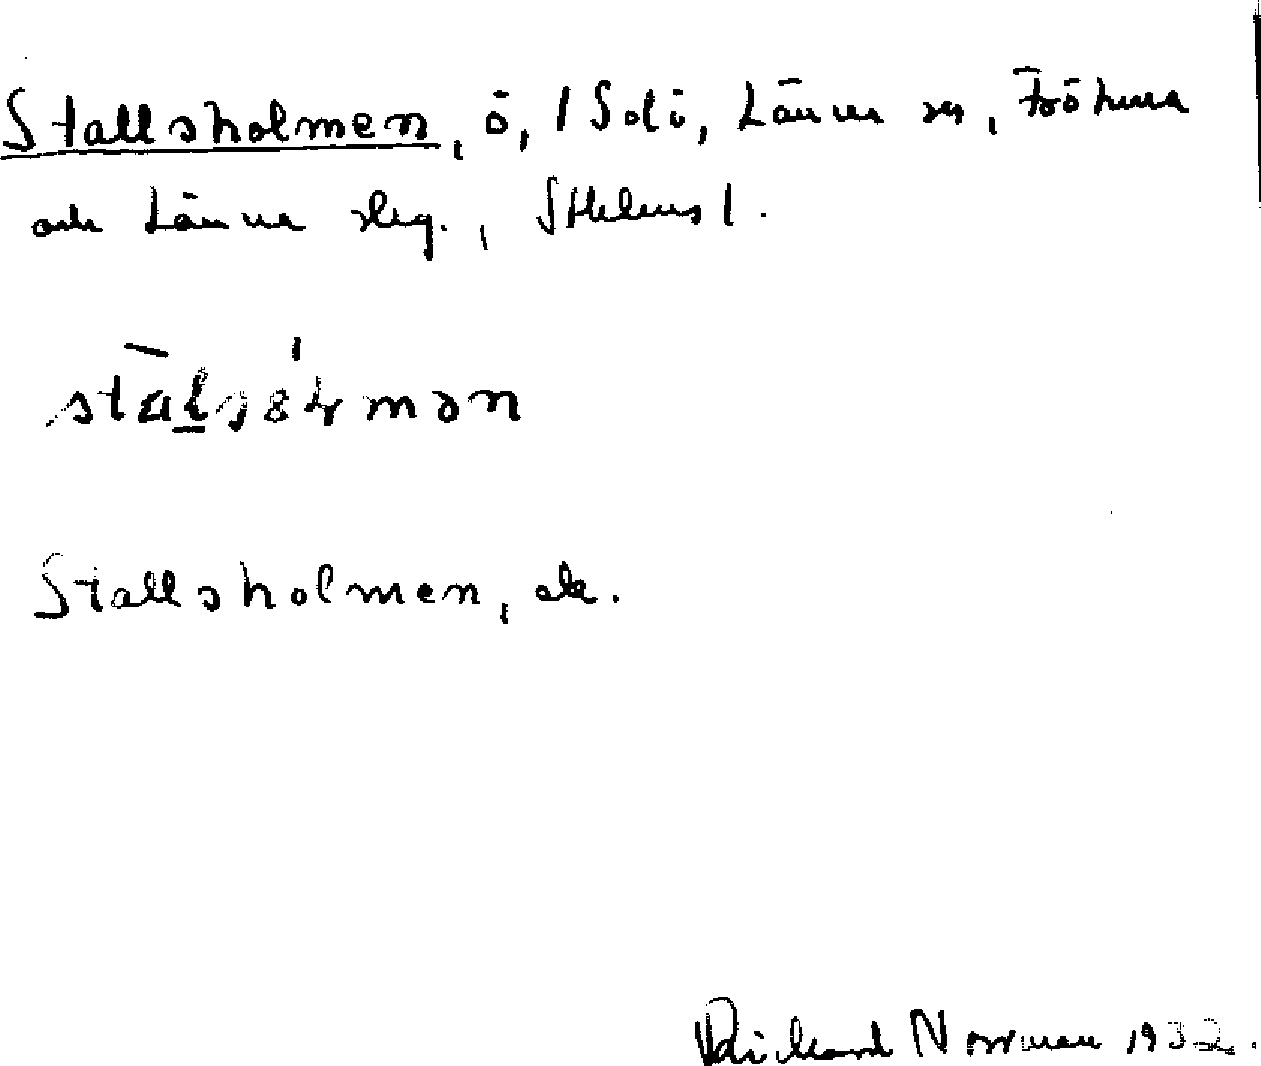 Stallsholmen, ö, 1 Solö, Länna sn, Fröhuna
och Länna skg., Sthlms l.
stalsormən
Stallsholmen, ek.
Rickard Norrman 1932.